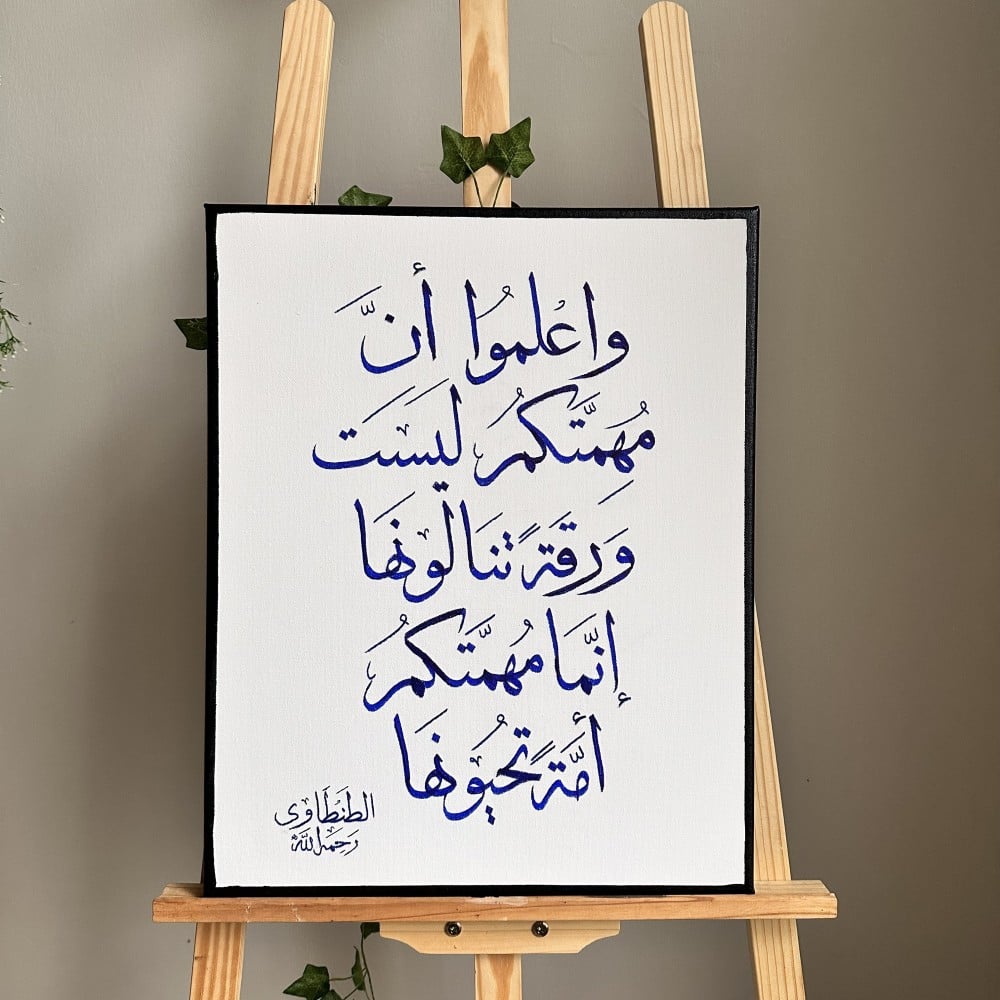 واعْلموُا أنَّ
مُهِمَّتَكمُ ليَسَت
وَرَقَةً تنَالوُنَها
إنَّمَا مُهِمَّتَكمُ
أمَّةً تحُيوُنَها
الطَنطَاوى
رَحِمَہُ اللَّه